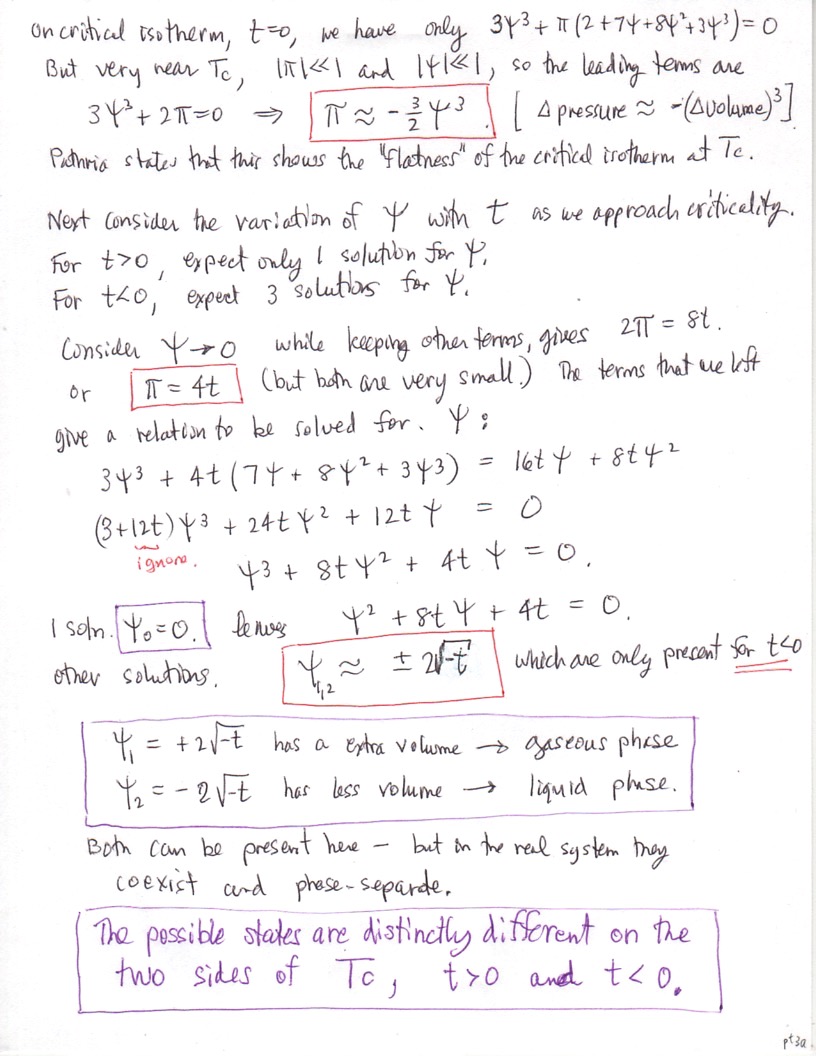 On critical isotherm, t=0, we have only 3ψ³ + π(2+7ψ+8ψ²+3ψ³) = 0
But very near Tc, |π|≪1 and |ψ|≪1, so the leading terms are
3ψ³ + 2π=0 ⇒ π ≈ -3/2 ψ³. [Δpressure ≈ -(Δvolume)³].
Pathria states that this shows the "flatness" of the critical isotherm at Tc.
Next consider the variation of ψ with t as we approach criticality.
For t>0, expect only 1 solution for ψ.
For t<0, expect 3 solutions for ψ.
Consider ψ→0 while keeping other terms, gives 2π = 8t.
or π = 4t (but both are very small.) The terms that we left
give a relation to be solved for. ψ:
3ψ³ + 4t(7ψ + 8ψ² + 3ψ³) = 16tψ + 8tψ²
(3+12t)ψ³ + 24tψ² + 12tψ = 0
ignore. ψ³ + 8tψ² + 4tψ = 0.
1 soln. ψ₀=0. leaves ψ² + 8tψ + 4t = 0.
other solutions. ψ₁,₂ ≈ ± 2√-t which are only present for t<0
ψ₁ = +2√-t has a extra volume → gaseous phase
ψ₂ = -2√-t has less volume → liquid phase.
Both can be present here – but in the real system they
coexist and phase-separate.
The possible states are distinctly different on the
two sides of Tc, t>0 and t<0.
pt3a